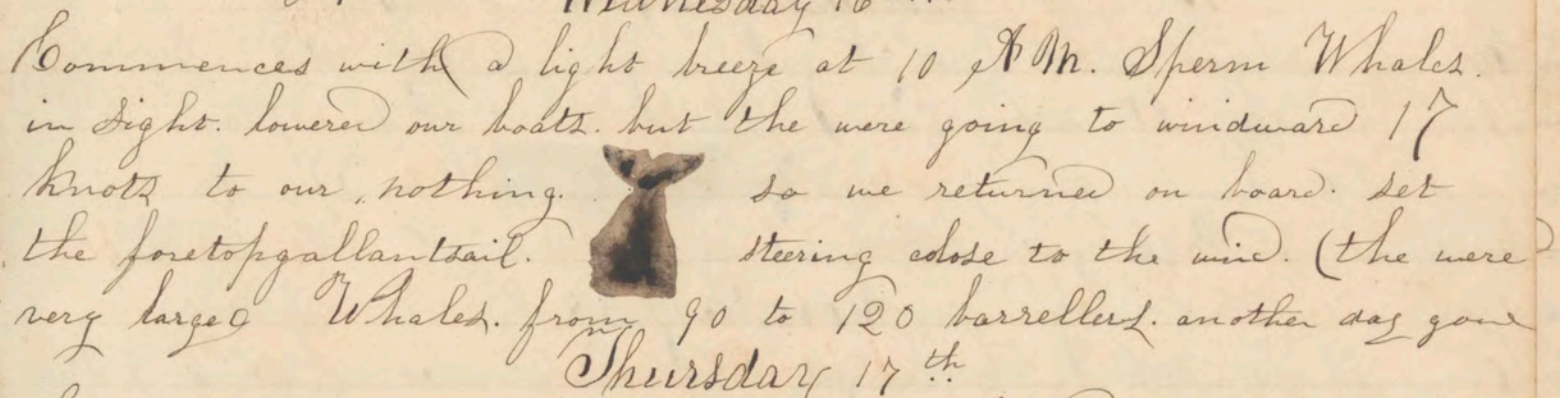 Wednesday 16th
Commences with a light breeze at 10 A M. Sperm Whales.
in sight. lowered our boats. but the were going to windward 17
knots to our nothing. so we returned on board. set
the foretopgallantsail. steering close to the wind. (the were
very large Whales. from 90 to 120 barrellers. another day gone
Thursday 17th